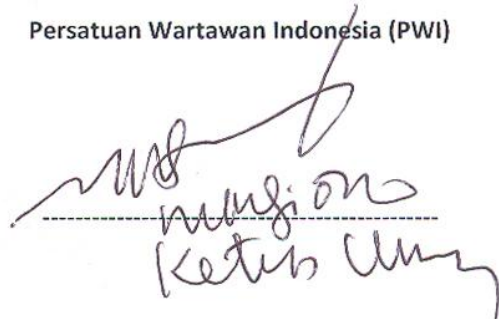 Persatuan Wartawan Indonesia (PWI)
Margiono
Ketua Umum